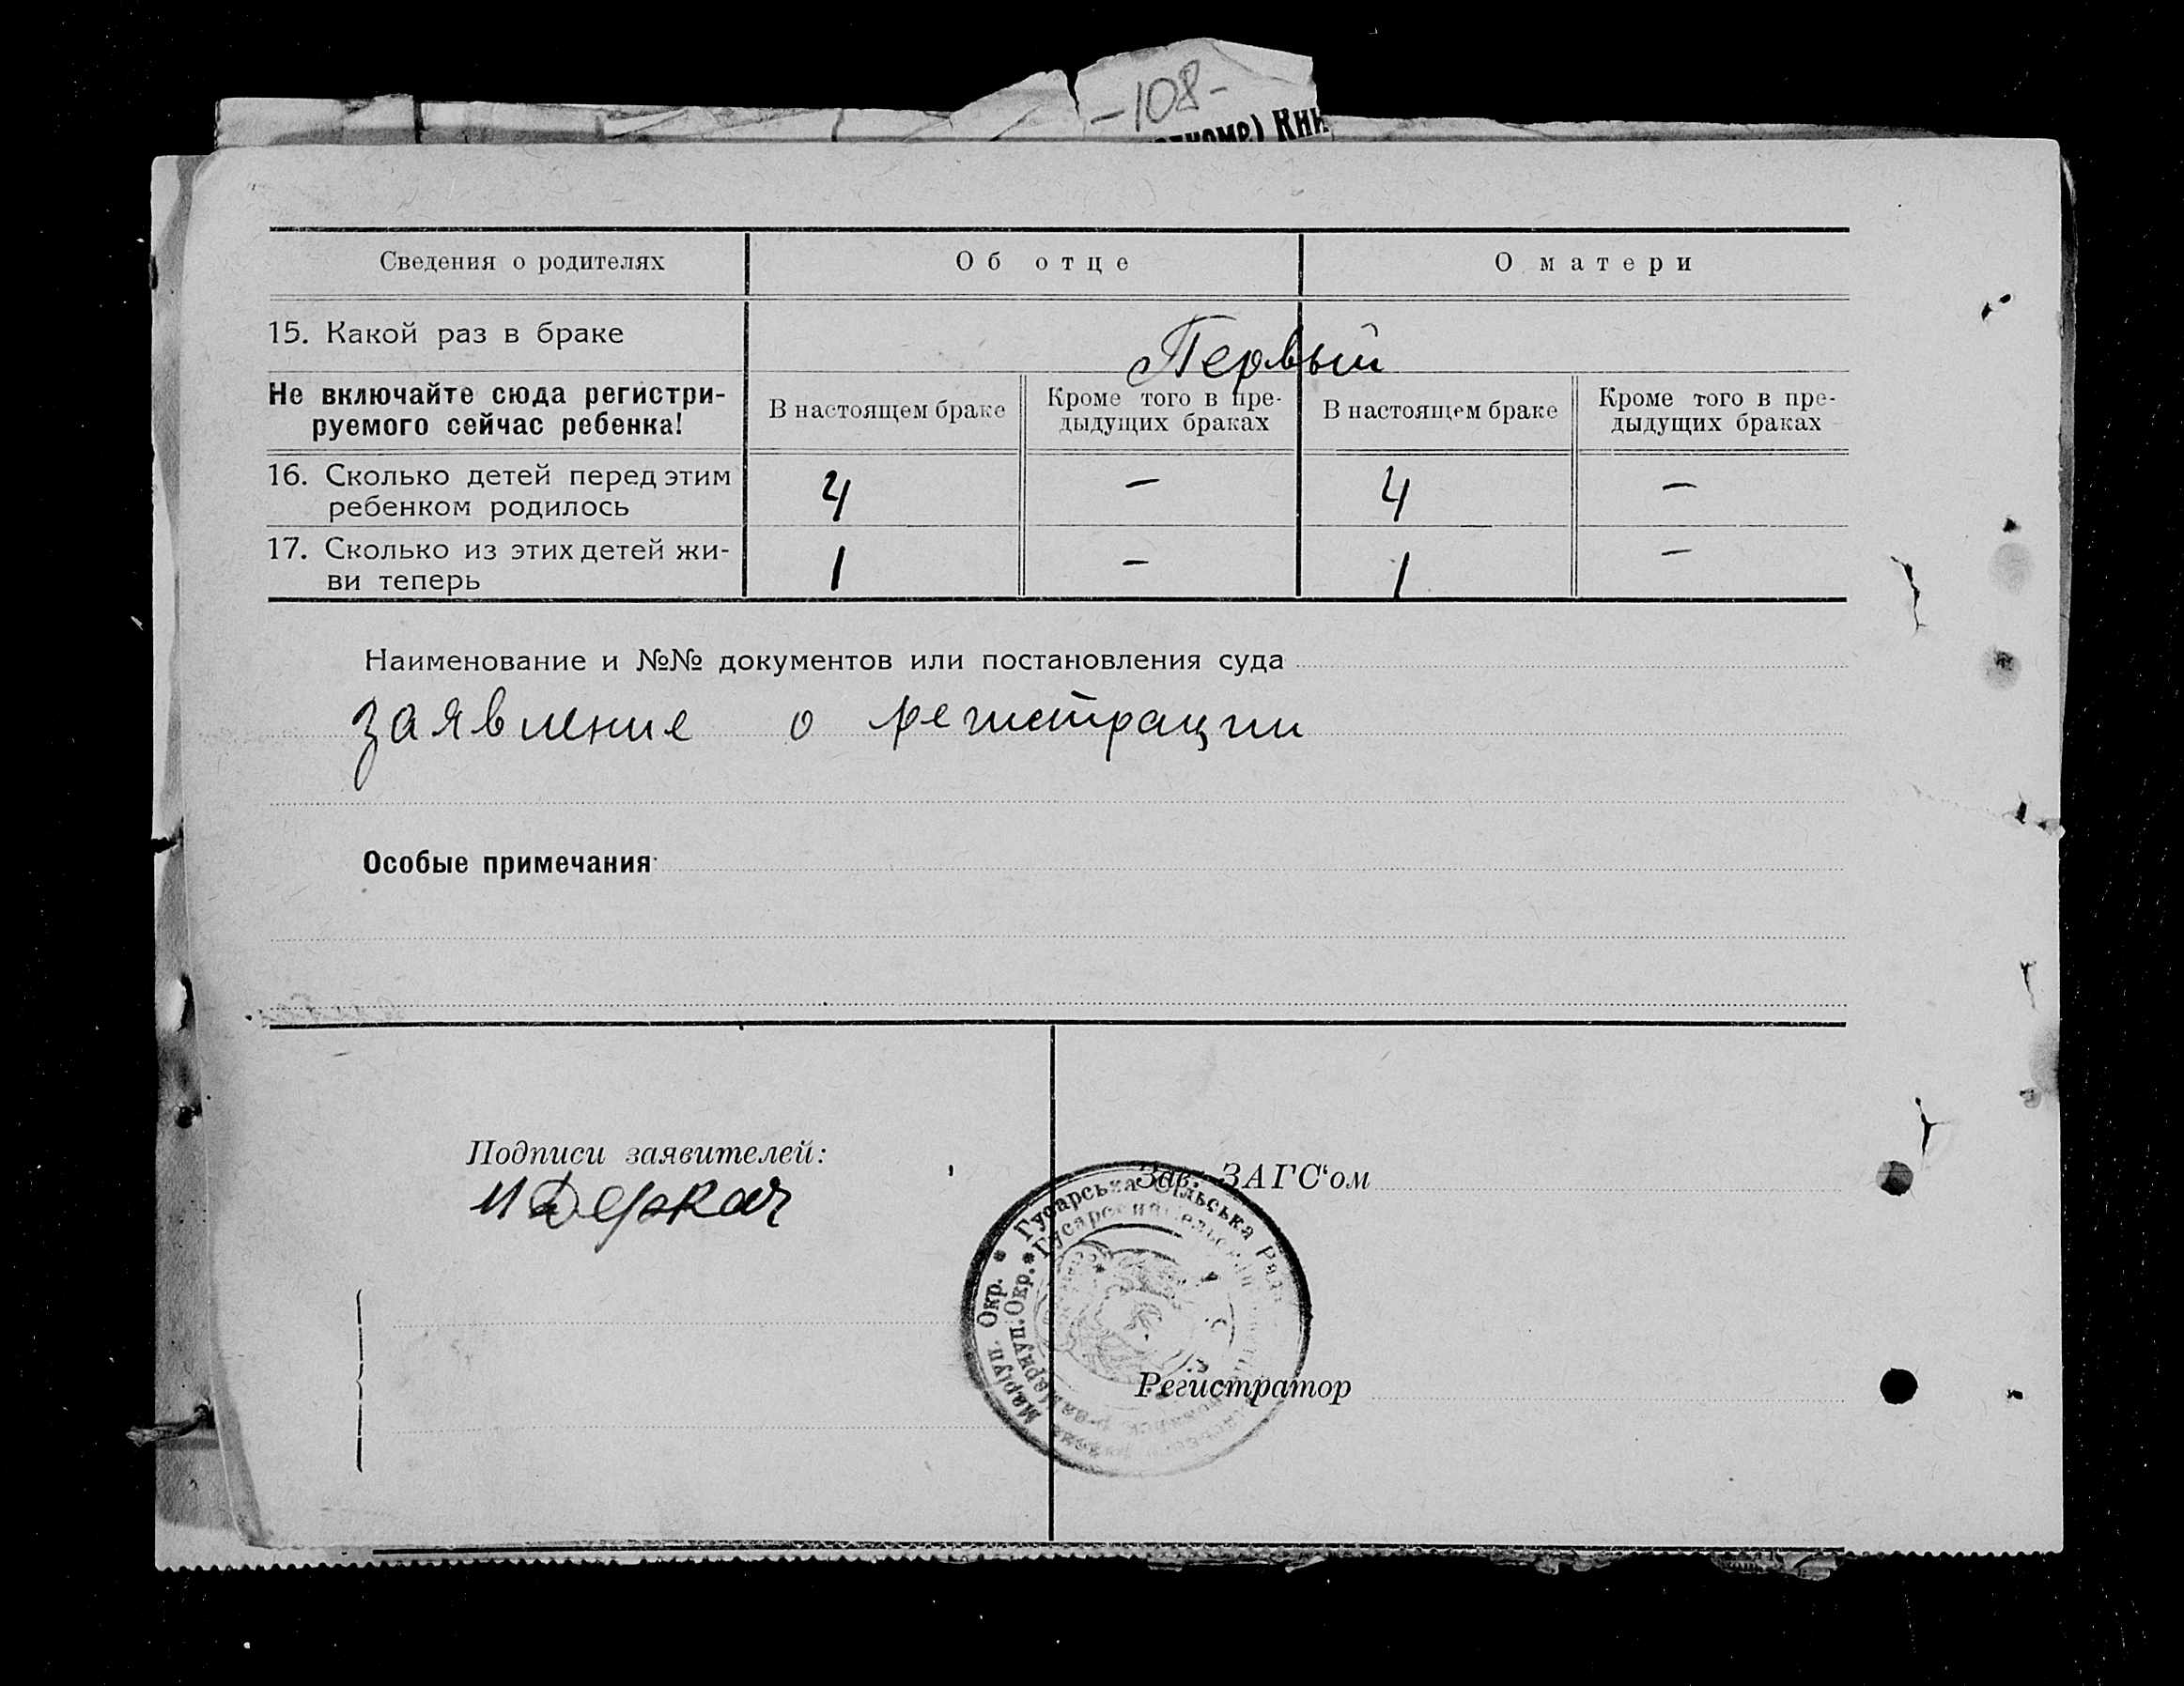 -108-
Сведения о родителях
Об отце
О матери
15. Какой раз в браке
Первый
Не включайте сюда регистри-
руемого сейчас ребенка!
В настоящем браке
Кроме того в пре-
дыдущих браках
В настоящем браке
Кроме того в пре-
дыдущих браках
16. Сколько детей перед этим
ребенком родилось
4
–
4
–
17. Сколько из этих детей жи-
ви теперь
1
–
1
–
Наименование и №№ документов или постановления суда
заявление о регистрации
Особые примечания
Подписи заявителей:
И Деркач
Зав. ЗАГС‘ом
Гусарська Сільська Рада
Маріуп. Окр.
Мариуп. Окр.
Регистратор